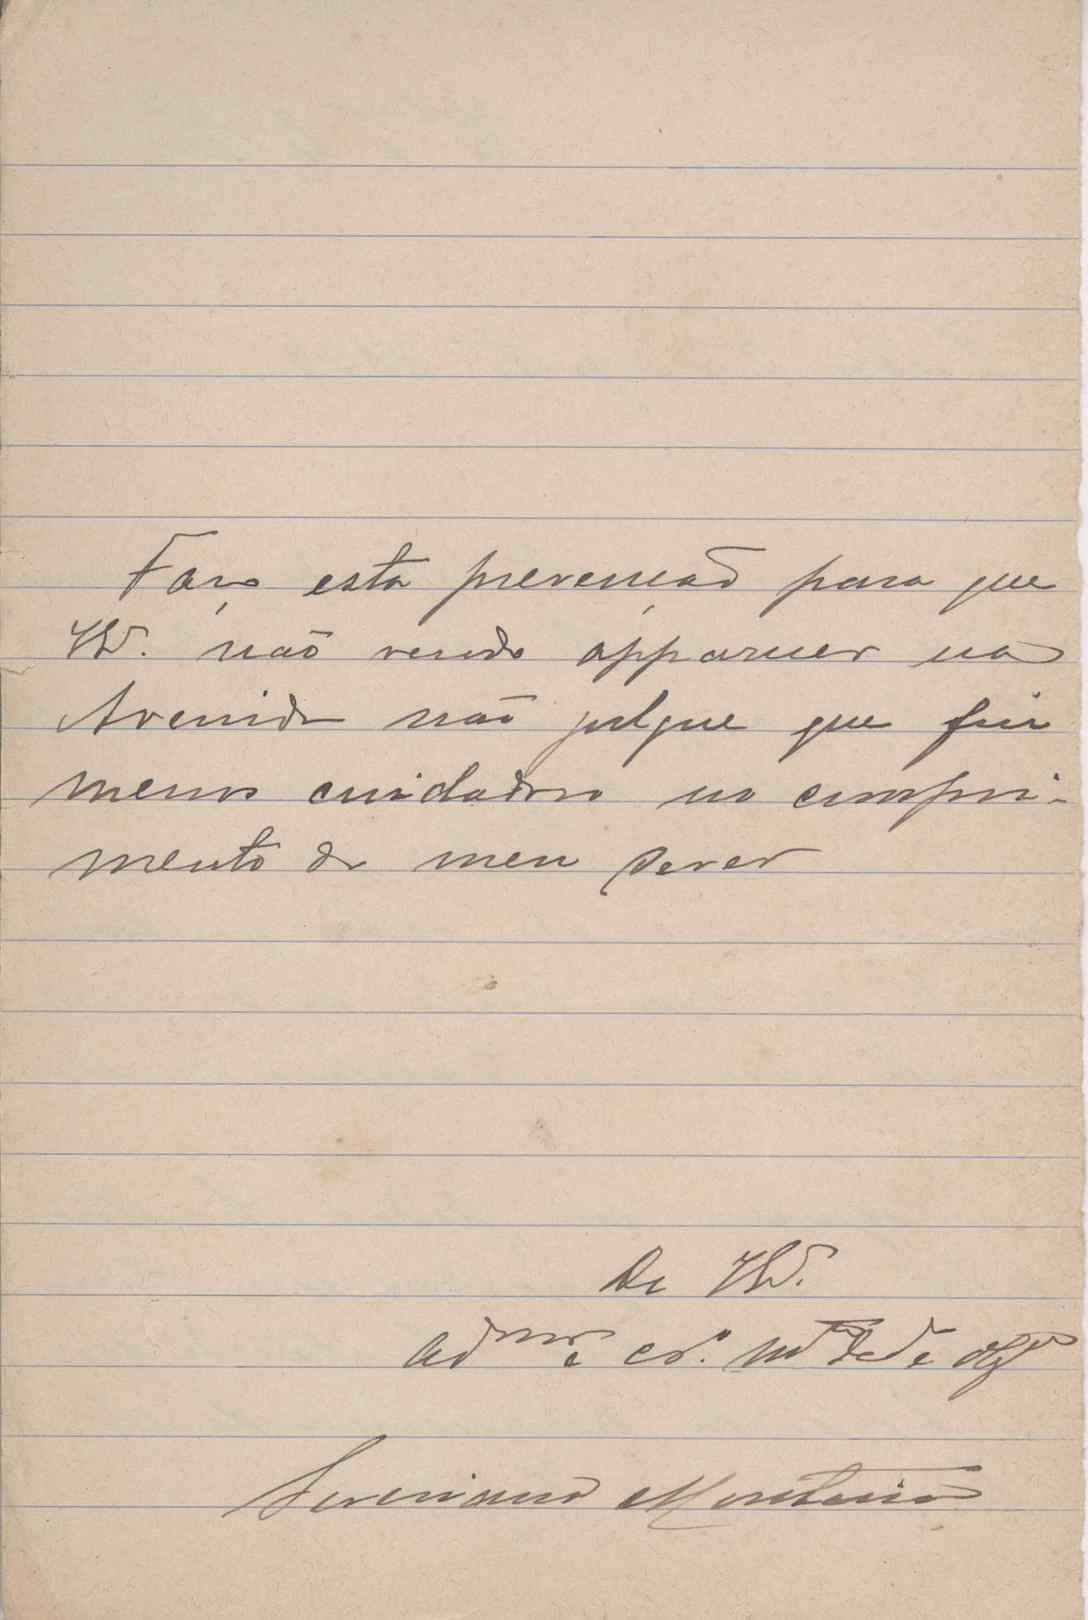 Faço esta prevenção para que
V. não vendo apparecer na
Avenida não julgue que fui
menos cuidadoso no cumpri-
mento do meu dever
De V.
adm.or e cr.º m.to ded.o e obg.o
Severiano Monteiro